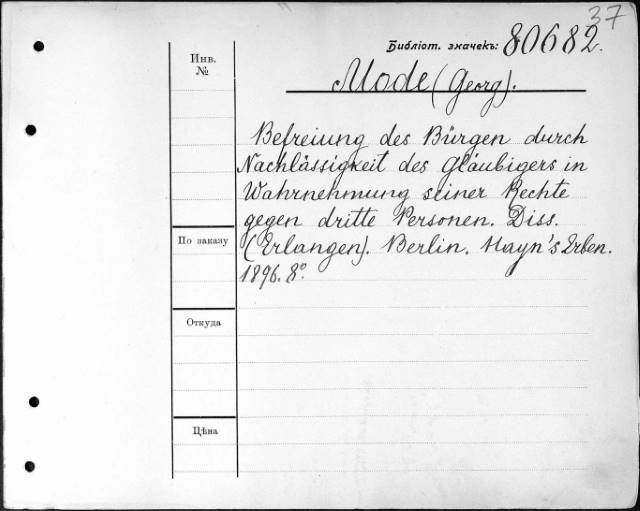 37
Библіот. значекъ: 80682.
Инв.
№
Mode (Georg).
Befreiung des Bürgen durch
Nachlässigkeit des Gläubigers in
Wahrnehmung seiner Rechte
gegen dritte Personen. Diss.
По заказу
(Erlangen). Berlin. Hayn's Erben.
1896. 8°.
Откуда
Цѣна